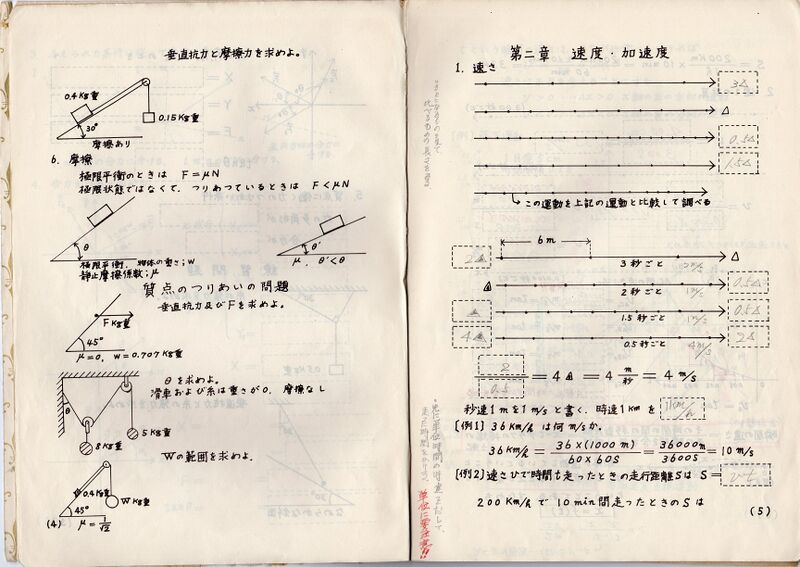 垂直抗力と摩擦力を求めよ。
0.4Kg重
0.15Kg重
30°
摩擦あり
6. 摩擦
極限平衡のときは F=μN
極限状態ではなくて、つりあっているときは F<μN
θ
θ'
極限平衡、物体の重さ;w
静止摩擦係数;μ
μ、θ'<θ
質点のつりあいの問題
垂直抗力及びFを求めよ。
F Kg重
45°
μ=0, w=0.707Kg重
θを求めよ。
滑車および糸は重さが0、摩擦なし
θ
8Kg重
5Kg重
Wの範囲を求めよ。
0.4Kg重
W Kg重
45°
μ=1/√2
(4)
第二章 速度・加速度
1. 速さ
3△
△
0.5△
1.5△
この運動を上記の運動と比較して調べる
6m
2△
3秒ごと
2m/s
△
2秒ごと
0.5△
1.5秒ごと
0.5△
4△
0.5秒ごと
4m/s
2△
2/0.5 = 4△ = 4 m/秒 = 4 m/s
秒速1mを1m/sと書く、時速1Kmを 1Km/h
[例1] 36Km/hは何m/sか。
36Km/h = 36×(1000m)/60×60S = 36000m/3600S = 10m/s
[例2] 速さvで時間t走ったときの走行距離SはS= vt
200Km/hで10min間走ったときのSは
(5)
単位に要注意!!